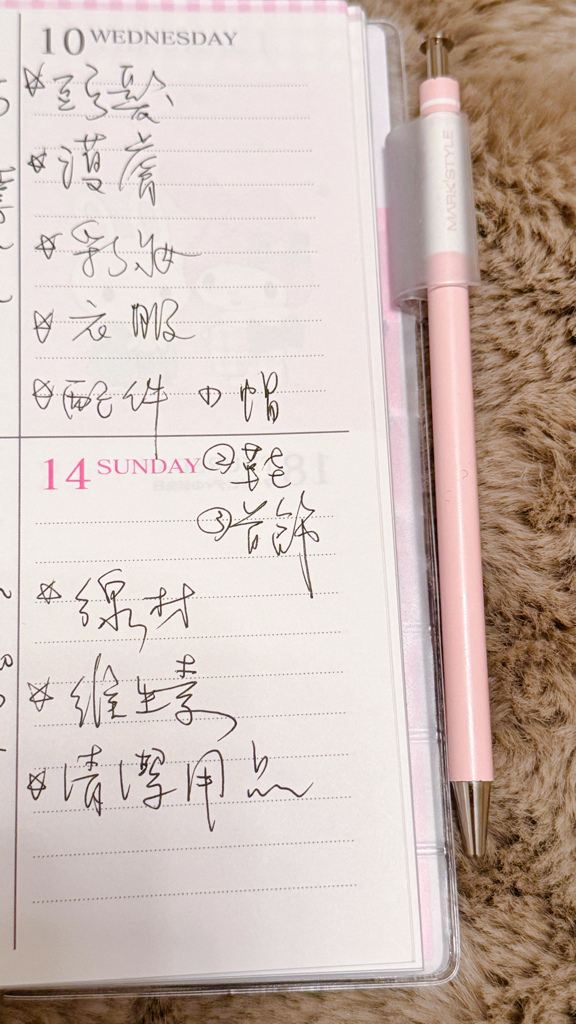 10 WEDNESDAY
☆ 頭髮
☆ 護膚
☆ 彩妝
☆ 衣服
☆ 配件 ① 帽
② 鞋
14 SUNDAY
③ 首飾
☆ 線材
☆ 維生素
☆ 清潔用品
MARK'STYLE